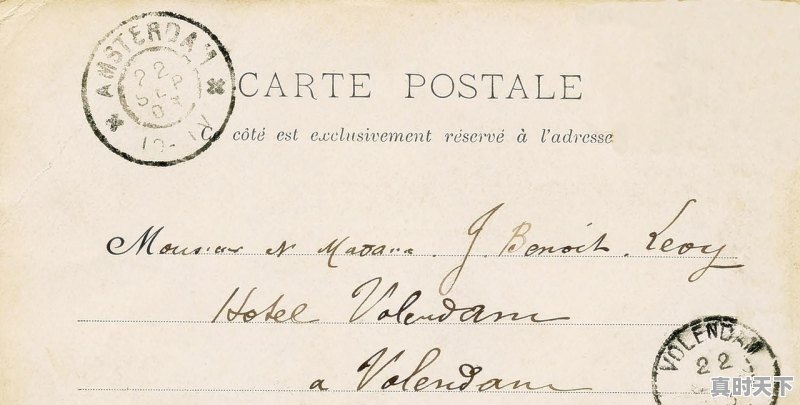 AMSTERDAM
CARTE POSTALE
Ce côté est exclusivement réservé à l'adresse
Monsieur et Madame J. Benoit Levy
Hotel Volendam
a Volendam
VOLENDAM
22
真时天下